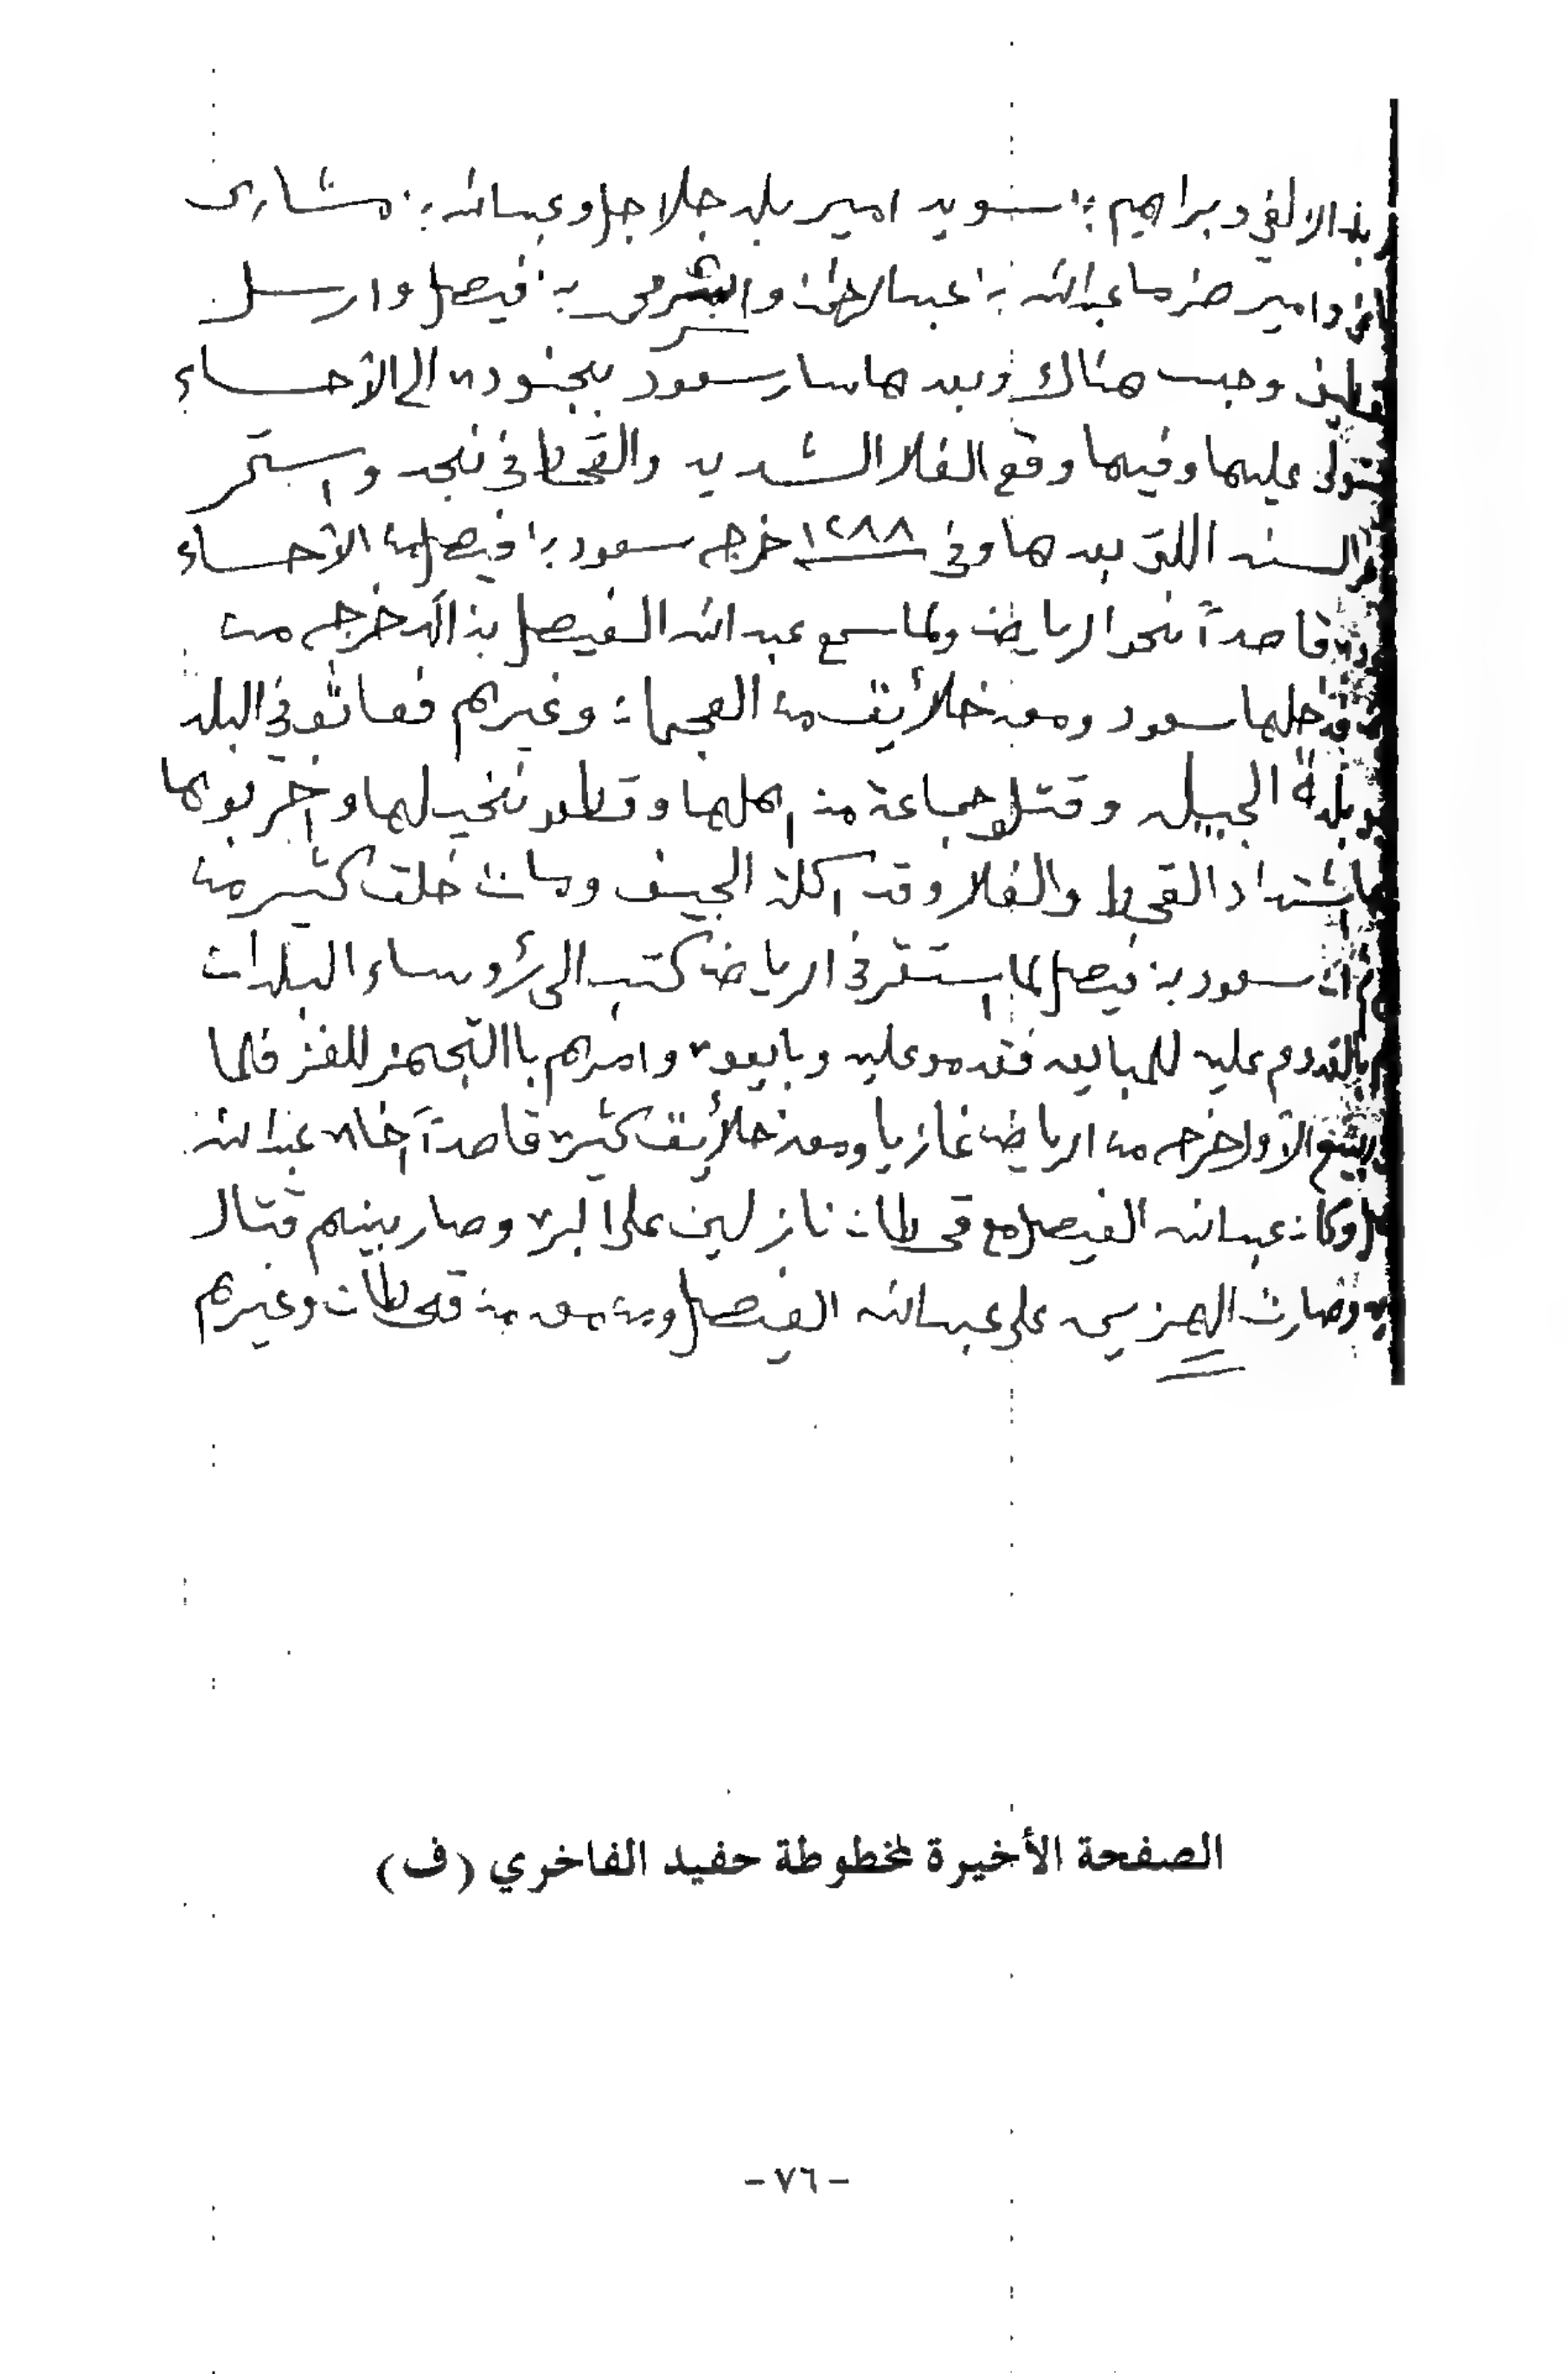 وبراهيم بن سويد امير بلد جلاجل وعبدالله بن مشارى
وامير ضرما عبدالله بن عبدالرحمن فيصل وارسل
هناك وبعدها سار سعود بجنوده الى الأحساء
عليها وفيها وقع الغلا الشديد والقحط في نجد واستمر
السنه اللتي بعدها وفي ١٢٨٨ خرج سعود بن فيصل من الأحساء
قاصداً نحو الرياض ولما سمع عبدالله الفيصل بذالك خرج من
سعود ومعه خلائق من العجمان وغيرهم فعاثو في البلد
الجبيله وقتلو جماعة من اهلها وقطعو نخيلها وخربوها
القحط والغلا وقد اكلة الجيف ومات خلق كثير من
سعود بن فيصل لما استقر في الرياض كتب الى رؤوساء البلدان
بالقدوم عليه للمبايعه فقدمو عليه وبايعوه وامرهم باالتجهز للغز فلما
الأول خرج من الرياض غازيا ومعه خلائق كثيره قاصداً اخاه عبدالله
وكان عبدالله الفيصل مع قحطان نازلين على البره وصار بينهم قتال
وصارت الهزيمى على عبدالله الفيصل ومن معه من قحطان وغيرهم
الصفحة الأخيرة لمخطوطة حفيد الفاخري (ف)
- ٧٦ -